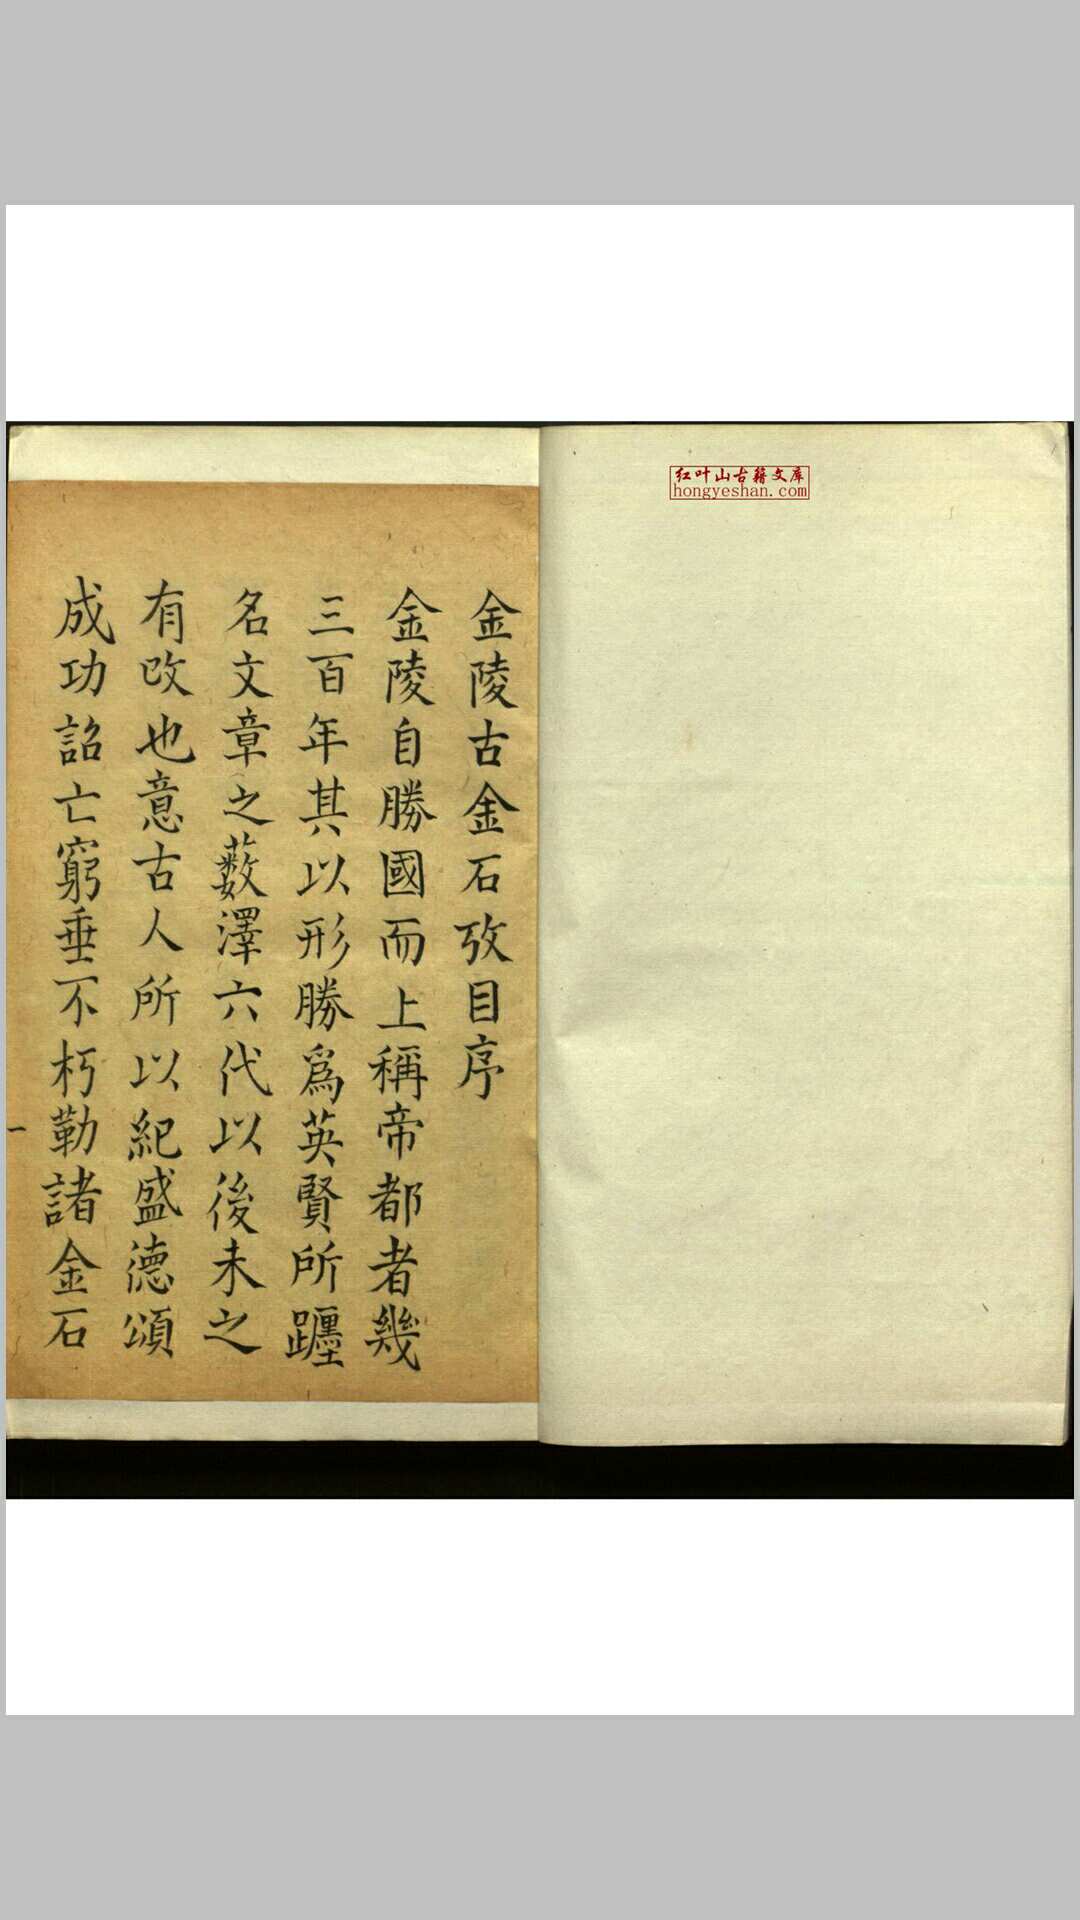 金陵古金石攷目序
金陵自勝國而上稱帝都者幾
三百年其以形勝爲英賢所躔
名文章之藪澤六代以後未之
有改也意古人所以紀盛德頌
成功詔亡窮垂不朽勒諸金石
一
红叶山古籍文库
hongyeshan.com